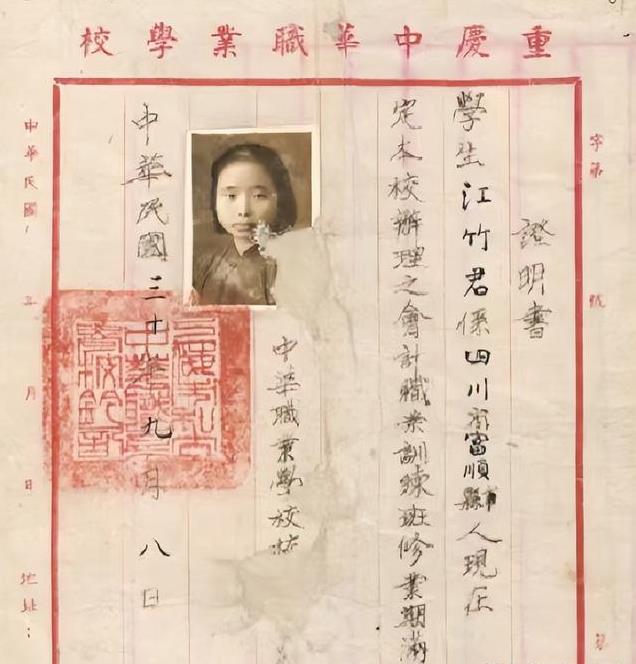 重慶中華職業學校
字第 號
證明書
學生江竹君係四川省富順縣人現在
定本校辦理之會計職業訓練班修業期滿
中華職業學校校
中華民國三十 九月八日
中華民國 年 月 日 地址：